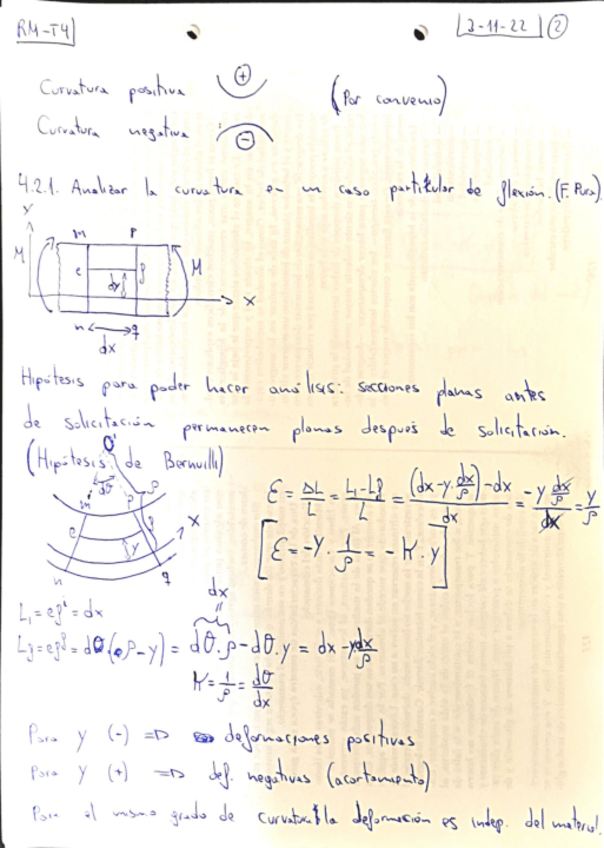 RM-T4
3-11-22 2
Curvatura positiva + (Por convenio)
Curvatura negativa -
4.2.1. Analizar la curvatura en un caso particular de flexión. (F. Pura)
Y
m P
M e dy f M
X
n q
dx
Hipótesis para poder hacer análisis: secciones planas antes
de solicitación permanecen planas después de solicitación.
(Hipótesis de Bernuilli)
O'
dθ ρ
m P
e f X
y
n q
ε = ΔL/L = (Li-Lf)/L = ((dx-y·dx/ρ)-dx)/dx = (-y dx/ρ)/dx = y/ρ
[ε = -y · 1/ρ = -K·y]
dx
"
Li = ef = dx
Lf = ef = dθ(ρ-y) = dθ·ρ-dθ·y = dx-y dx/ρ
K = 1/ρ = dθ/dx
Para y (-) ⇒ deformaciones positivas
Para y (+) ⇒ def. negativas (acortamiento)
Para el mismo grado de curvatura la deformación es indep. del material.